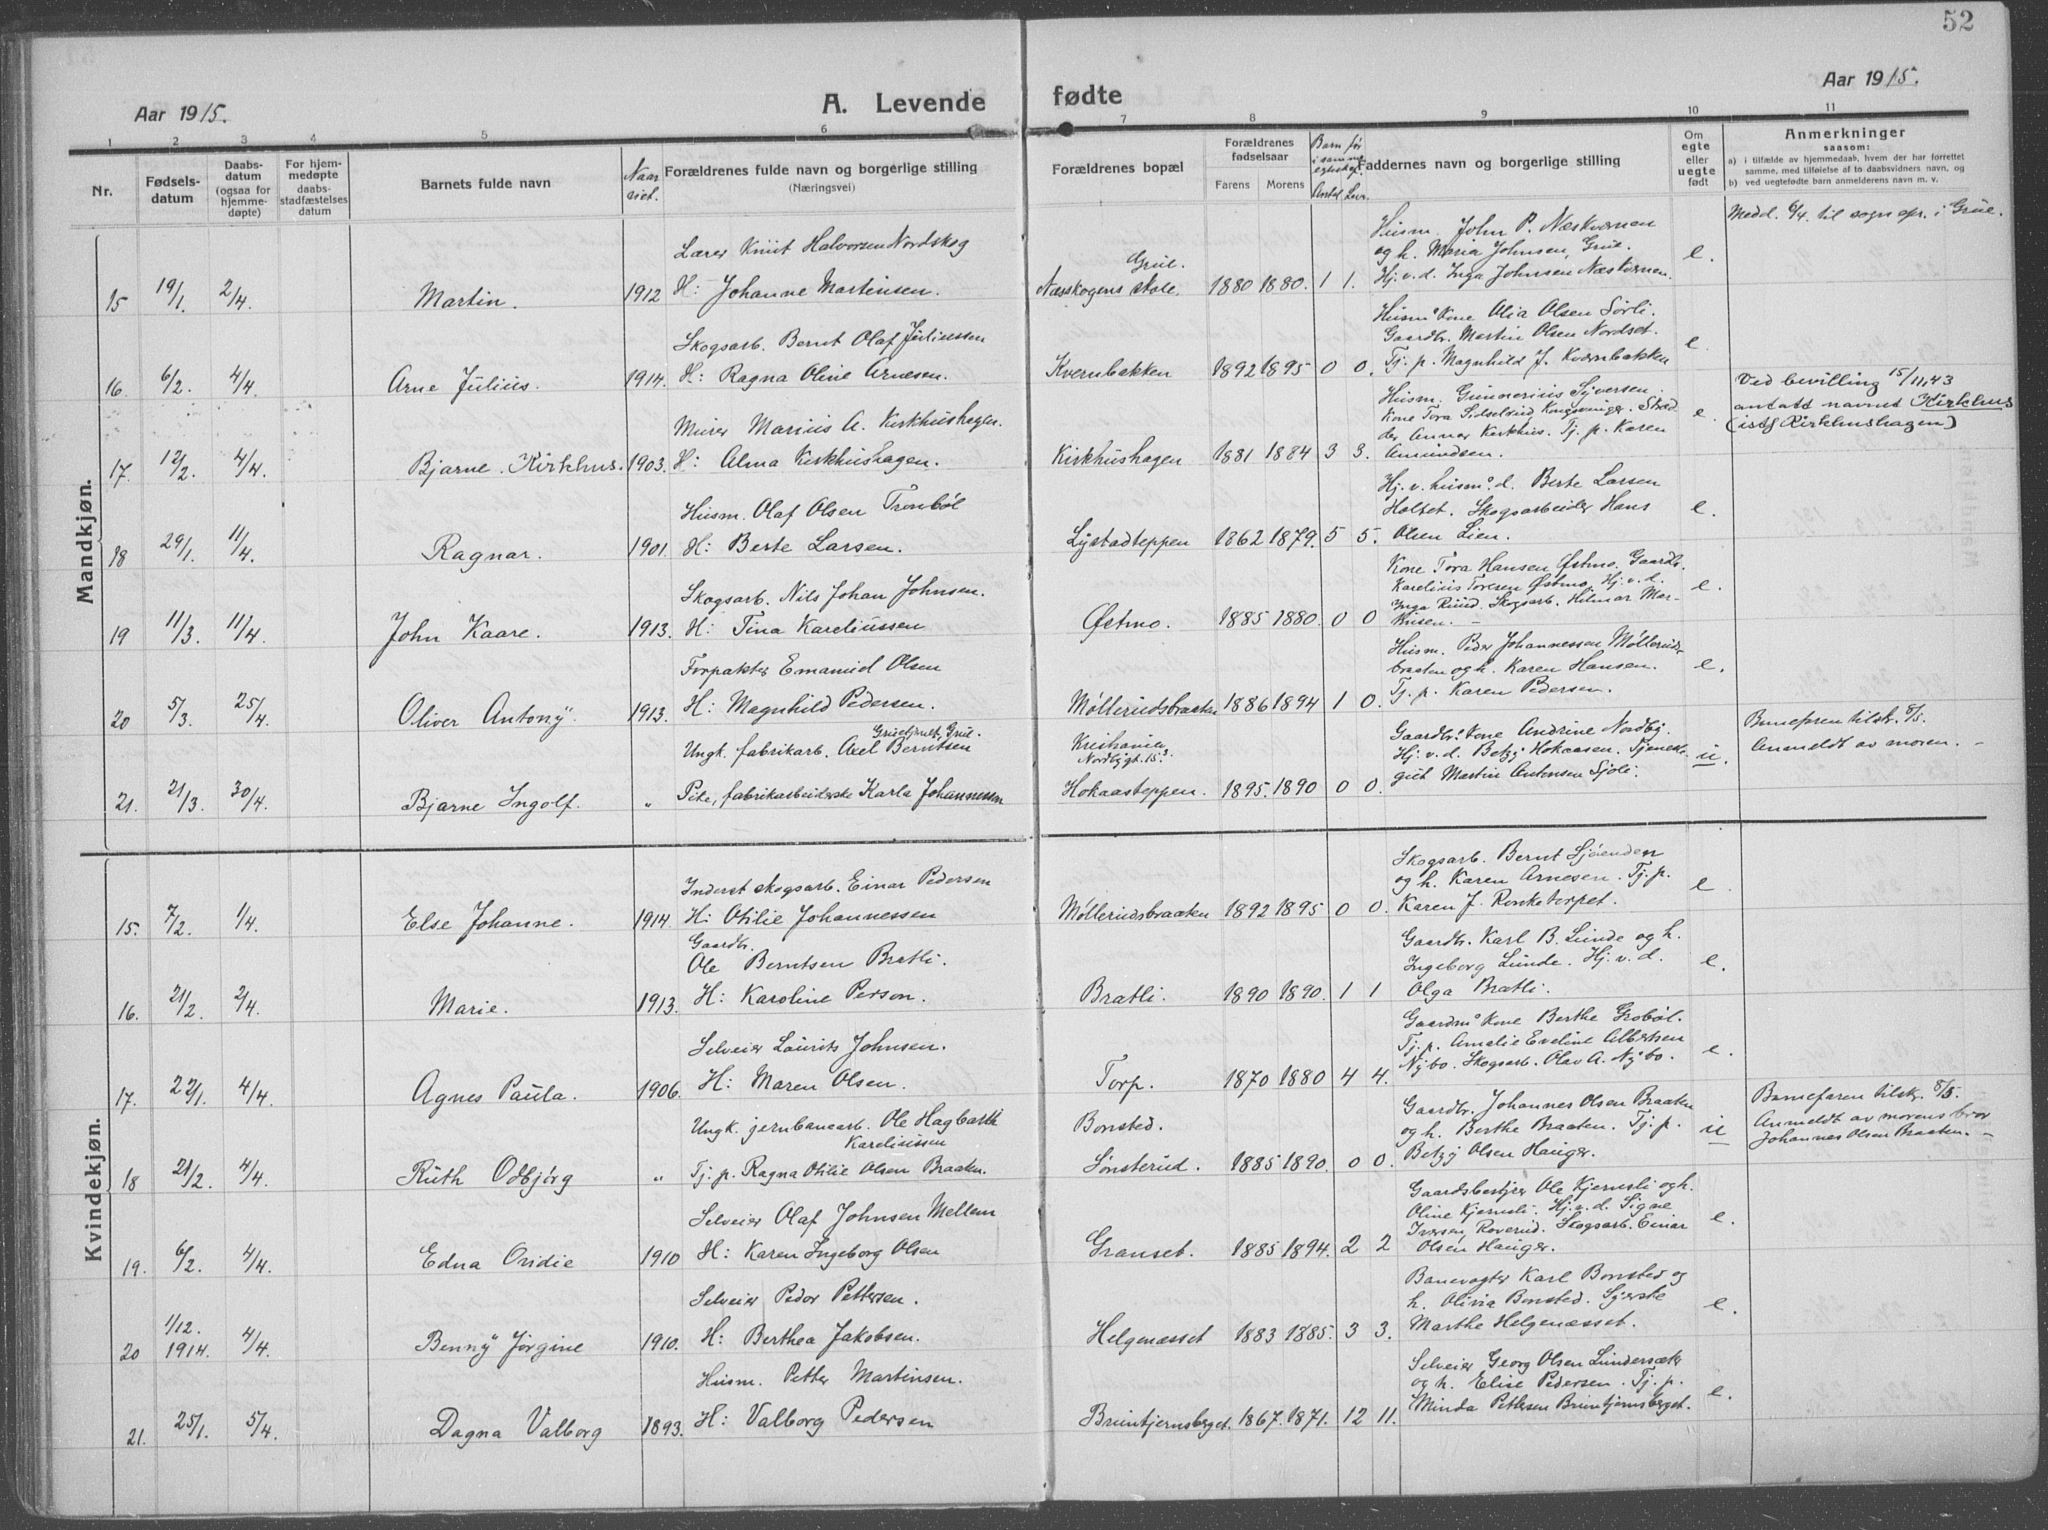 52
Aar 1915.
A. Levende fødte
Aar 1915.
1 2 3 4 5 6 7 8 9 10 11
Nr.
Fødsels-
datum
Daabs-
datum
(ogsaa for
hjemme-
døpte)
For hjem-
medøpte
daabs-
stadfæstelses
datum
Barnets fulde navn
Naar
viet.
Forældrenes fulde navn og borgerlige stilling
(Næringsvei)
Forældrenes bopæl
Forældrenes
fødselsaar
Farens Morens
Barn før
i samme
egteskap.
Antal Lev.
Faddernes navn og borgerlige stilling
Om
egte
eller
uegte
født
Anmerkninger
saasom:
a) i tilfælde av hjemmedaab, hvem der har forrettet
samme, med tilføielse af to daabsvidners navn, og
b) ved uegtefødte barn anmelderens navn m. v.
Mandkjøn.
Medd. 6/4. til sogneprs. i Grue.
Lærer Knut Halvorsen Nordskog
Husm. John P. Næskvernen
og h. Maria Johnsen, Grue.
Grue.
15 19/1. 2/4. Martin. 1912 H: Johanne Martinsen. Næsskogens skole. 1880 1880. 1 1. Hj. v. d. Inga Johnsen Næskvernen. e.
Skogsarb. Bernt Olaf Juliussen
Husm.s Kone Olia Olsen Sørli.
Gaardbr. Martin Olsen Nordset.
16. 6/2. 4/4. Arne Julius. 1914. H: Ragna Oline Arnesen. Kvernbakken 1892 1895 0 0. Tj. p. Magnhild J. Kvernbakken e.
Ved bevilling 15/11.43
antatt navnet Kirkhus
(istf Kirkhushagen)
Murer Marius A. Kirkhushagen.
Husm. Gunnerius Syversen.
Kone Tora Sidselrud Kongsvinger. Skræd
der Annar Kirkhus. Tj. p. Karen
17. 12/2. 4/4. Bjarne. Kirkhus. 1903. H: Alma Kirkhushagen. Kirkhushagen 1881 1884 3 3. Amundsen. e
Husm. Olaf Olsen Trønbøl
Hj. v. husm.s d. Berte Larsen
Holtet. Skogsarbeider Hans
18 29/1. 11/4. Ragnar. 1901. H: Berte Larsen. Lystadteppen 1862 1879. 5 5. Olsen Lien. e.
Skogsarb. Nils Johan Johnsen.
Kone Tora Hansen Østmo. Gaardbr.
Karelius Toresen Østmo, Hj. v. d.
Inga Ruud. Skogsarb. Hilmar Mar-
19 11/3. 11/4. John Kaare. 1913. H: Tina Kareliussen Østmo. 1885 1880. 0 0 kusen. – e.
Forpakter Emanuel Olsen
Husm. Peder Johannessen Møllerud-
braaten og h. Karen Hansen.
20 5/3. 25/4. Oliver Antony. 1913. H: Magnhild Pedersen. Møllerudsbraaten 1886 1894 1 0. Tj. p. Karen Pedersen. e.
Ungk. fabrikarb. Axel Berntsen
Kristiania
Nordlygt. 15.3
Gaardbr.s Kone Andrine Nordby.
Hj. v. d. Betzy Hokaasen. Tjeneste-
Barnefaren tilskr. 8/5.
Anmeldt av moren. –
21. 21/3. 30/4. Bjarne Ingolf. " Pike, fabrikarbeiderske Karla Johannessen Hokaasteppen. 1895. 1890 0 0. gut Martin Antonsen Sjøli. u.
Kvindekjøn.
Inderst skogsarb. Einar Pedersen
Skogsarb. Bernt Sjøenden
og h. Karen Arnesen. Tj. p.
15. 7/2. 1/4. Else Johanne. 1914. H: Otilie Johannessen Møllerudsbraaten 1892 1895 0 0. Karen J. Rosketorpet. e
Gaardbr.
Ole Berntsen Bratli.
Gaardbr. Karl B. Lunde og h.
Ingeborg Lunde. Hj. v. d.
16. 21/2. 2/4. Marie. 1913. H: Karoline Person. Bratli. 1890 1890. 1 1 Olga Bratli. e.
Selveier Laurits Johnsen.
Gaardm.s Kone Berthe Grobøl.
Tj. p. Amalie Eveline Albertsen
Nybo. Skogsarb. Olav A. Nybo.
17. 22/1. 4/4. Agnes Paula. 1906. H: Maren Olsen. Torp. 1870 1880 4 4. e.
Ungk. jernbanearb. Ole Hagbarth
Kareliussen
Bonsted.
Gaardbr. Johannes Olsen Braaten
og h. Berthe Braaten. Tj. p.
Barnefaren tilskr. 8/5.
Anmeldt av morens bror
Johannes Olsen Braaten. –
18 21/2. 4/4. Ruth Odbjørg " Tj. p. Ragna Otilie Olsen Braaten. Sønsterud. 1885 1890. 0 0. Betzy Olsen Hauger. u
Selveier Olaf Johnsen Mellem
Gaardsbestyrer Ole Kjernsli og h.
Oline Kjernsli. Hj. v. d. Signe
Iversen, Roverud. Skogsarb. Einar
19. 6/2. 4/4. Edna Oridie 1910 H: Karen Ingeborg Olsen Granset. 1885 1894. 2 2 Olsen Hauger. e.
Selveier Peder Pettersen.
Banevogter Karl Bonsted og
h. Olivia Bonsted. Gjerske
20 1/12. 1914. 4/4. Benny Jørgine 1910. H: Berthea Jakobsen. Helgenæsset 1883 1885. 3 3. Marthe Helgenæsset. e.
Husm. Petter Martinsen.
Selveier Georg Olsen Lundersæter
og h. Elise Pedersen. Tj. p.
21. 25/1. 5/4. Dagna Valborg 1893. H: Valborg Pedersen Bruntjernsberget. 1867. 1871. 12 11. Minda Pettersen Bruntjernsberget. e.